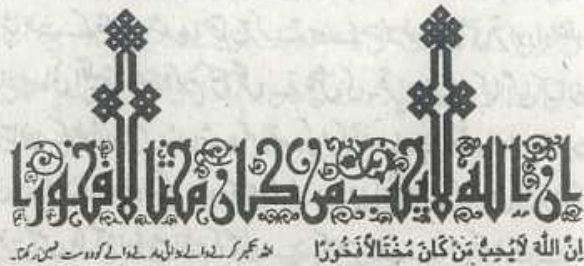 ان الله لا يحب من كان مختالا فخورا
اِنَّ اللّٰهَ لَايُحِبُّ مَنْ كَانَ مُخْتَالاً فَخُوْرًا
اللہ تکبر کرنے والے بڑائی مارنے والے کو دوست نہیں رکھتا۔